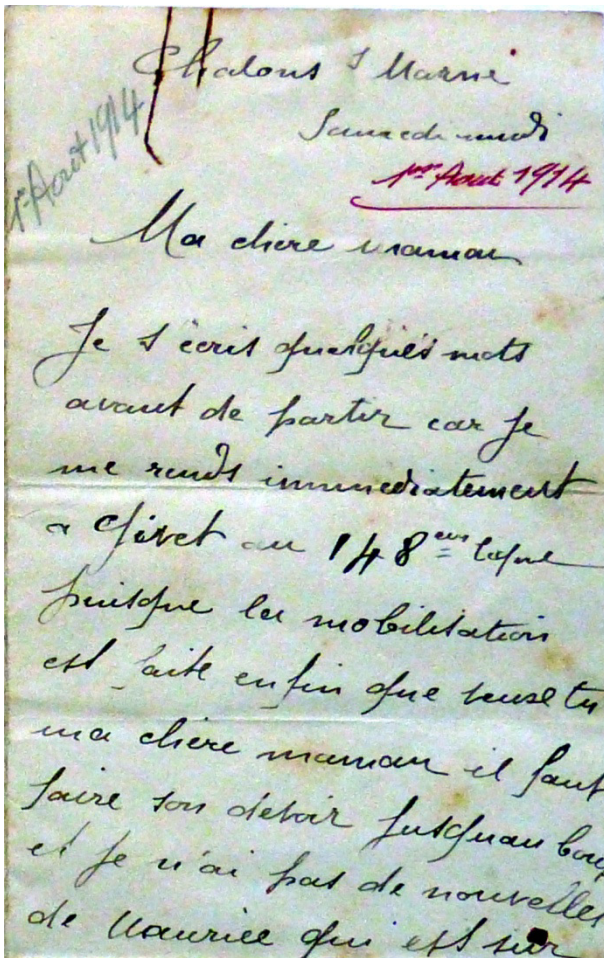 Chalons s Marne
Samedi midi
1er Aout 1914
1er Aout 1914
Ma chère maman
Je t'écris quelques mots
avant de partir car je
me rends immediatement
a Givet au 148eme
puisque la mobilisation
est faite enfin que veux tu
ma chère maman il faut
faire son devoir jusquau bout
et je n'ai pas de nouvelles
de Maurice qui est sur